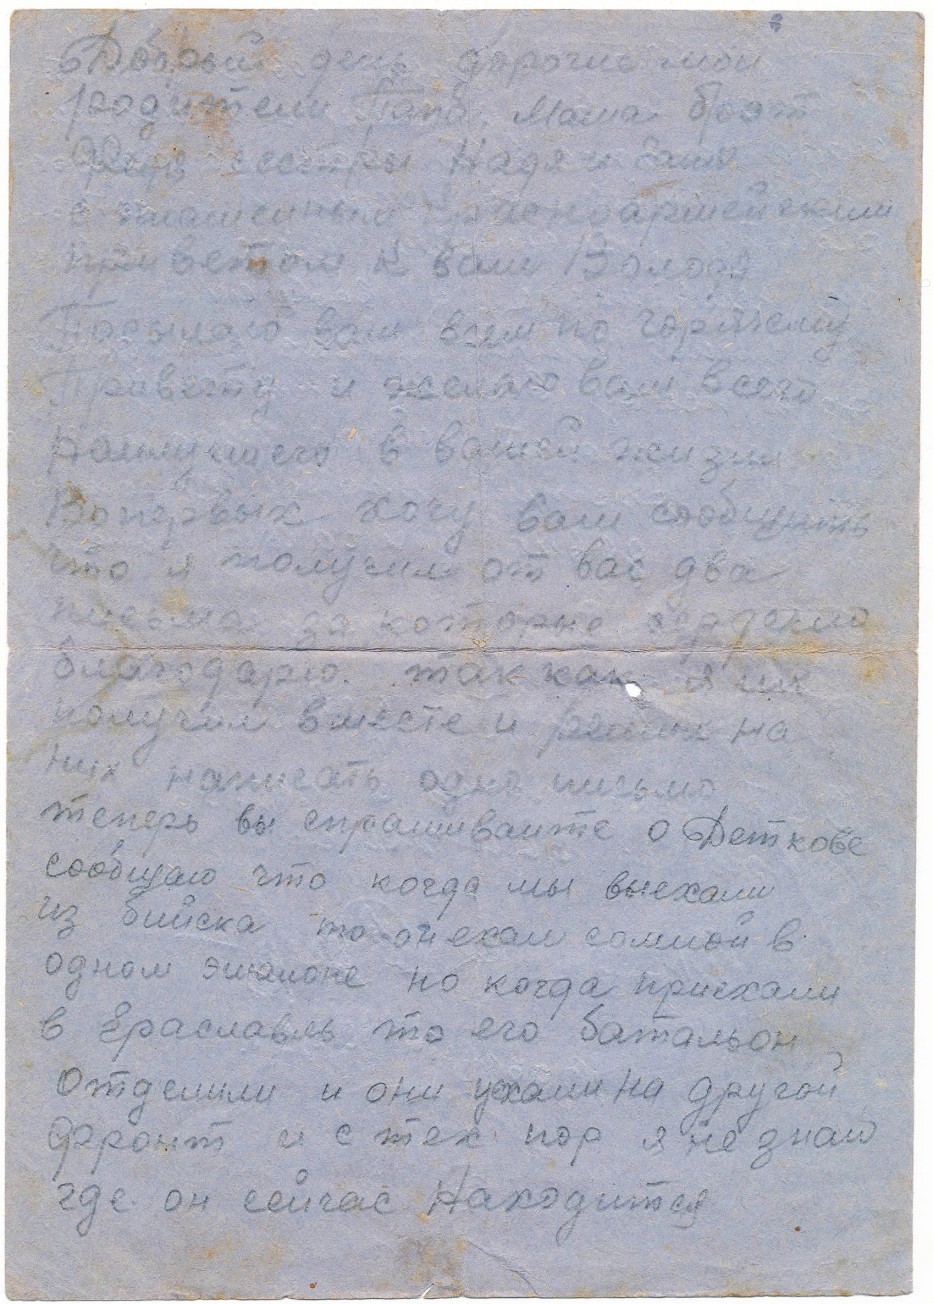 Добрый день дорогие мои
родители Папа, Мама брат
сестры Надя и
с пламенным красноармейским
приветом к вам Володя
Посылаю вам всем по горячему
Привету и желаю вам всего
Наилучшего в вашей жизни
Вопервых хочу вам сообщить
что я получил от вас два
письма за которые сердечно
благодарю. так как я их
получил вместе и решил на
них написать одно письмо
теперь вы спрашиваите о Деткове
сообщаю что когда мы выехали
из бийска то он ехал сомной в
одном эшалоне но когда приехали
в Ераславль то его батальон
Отделили и они ухали на другой
фронт и с тех пор я не знаю
где он сейчас Находится